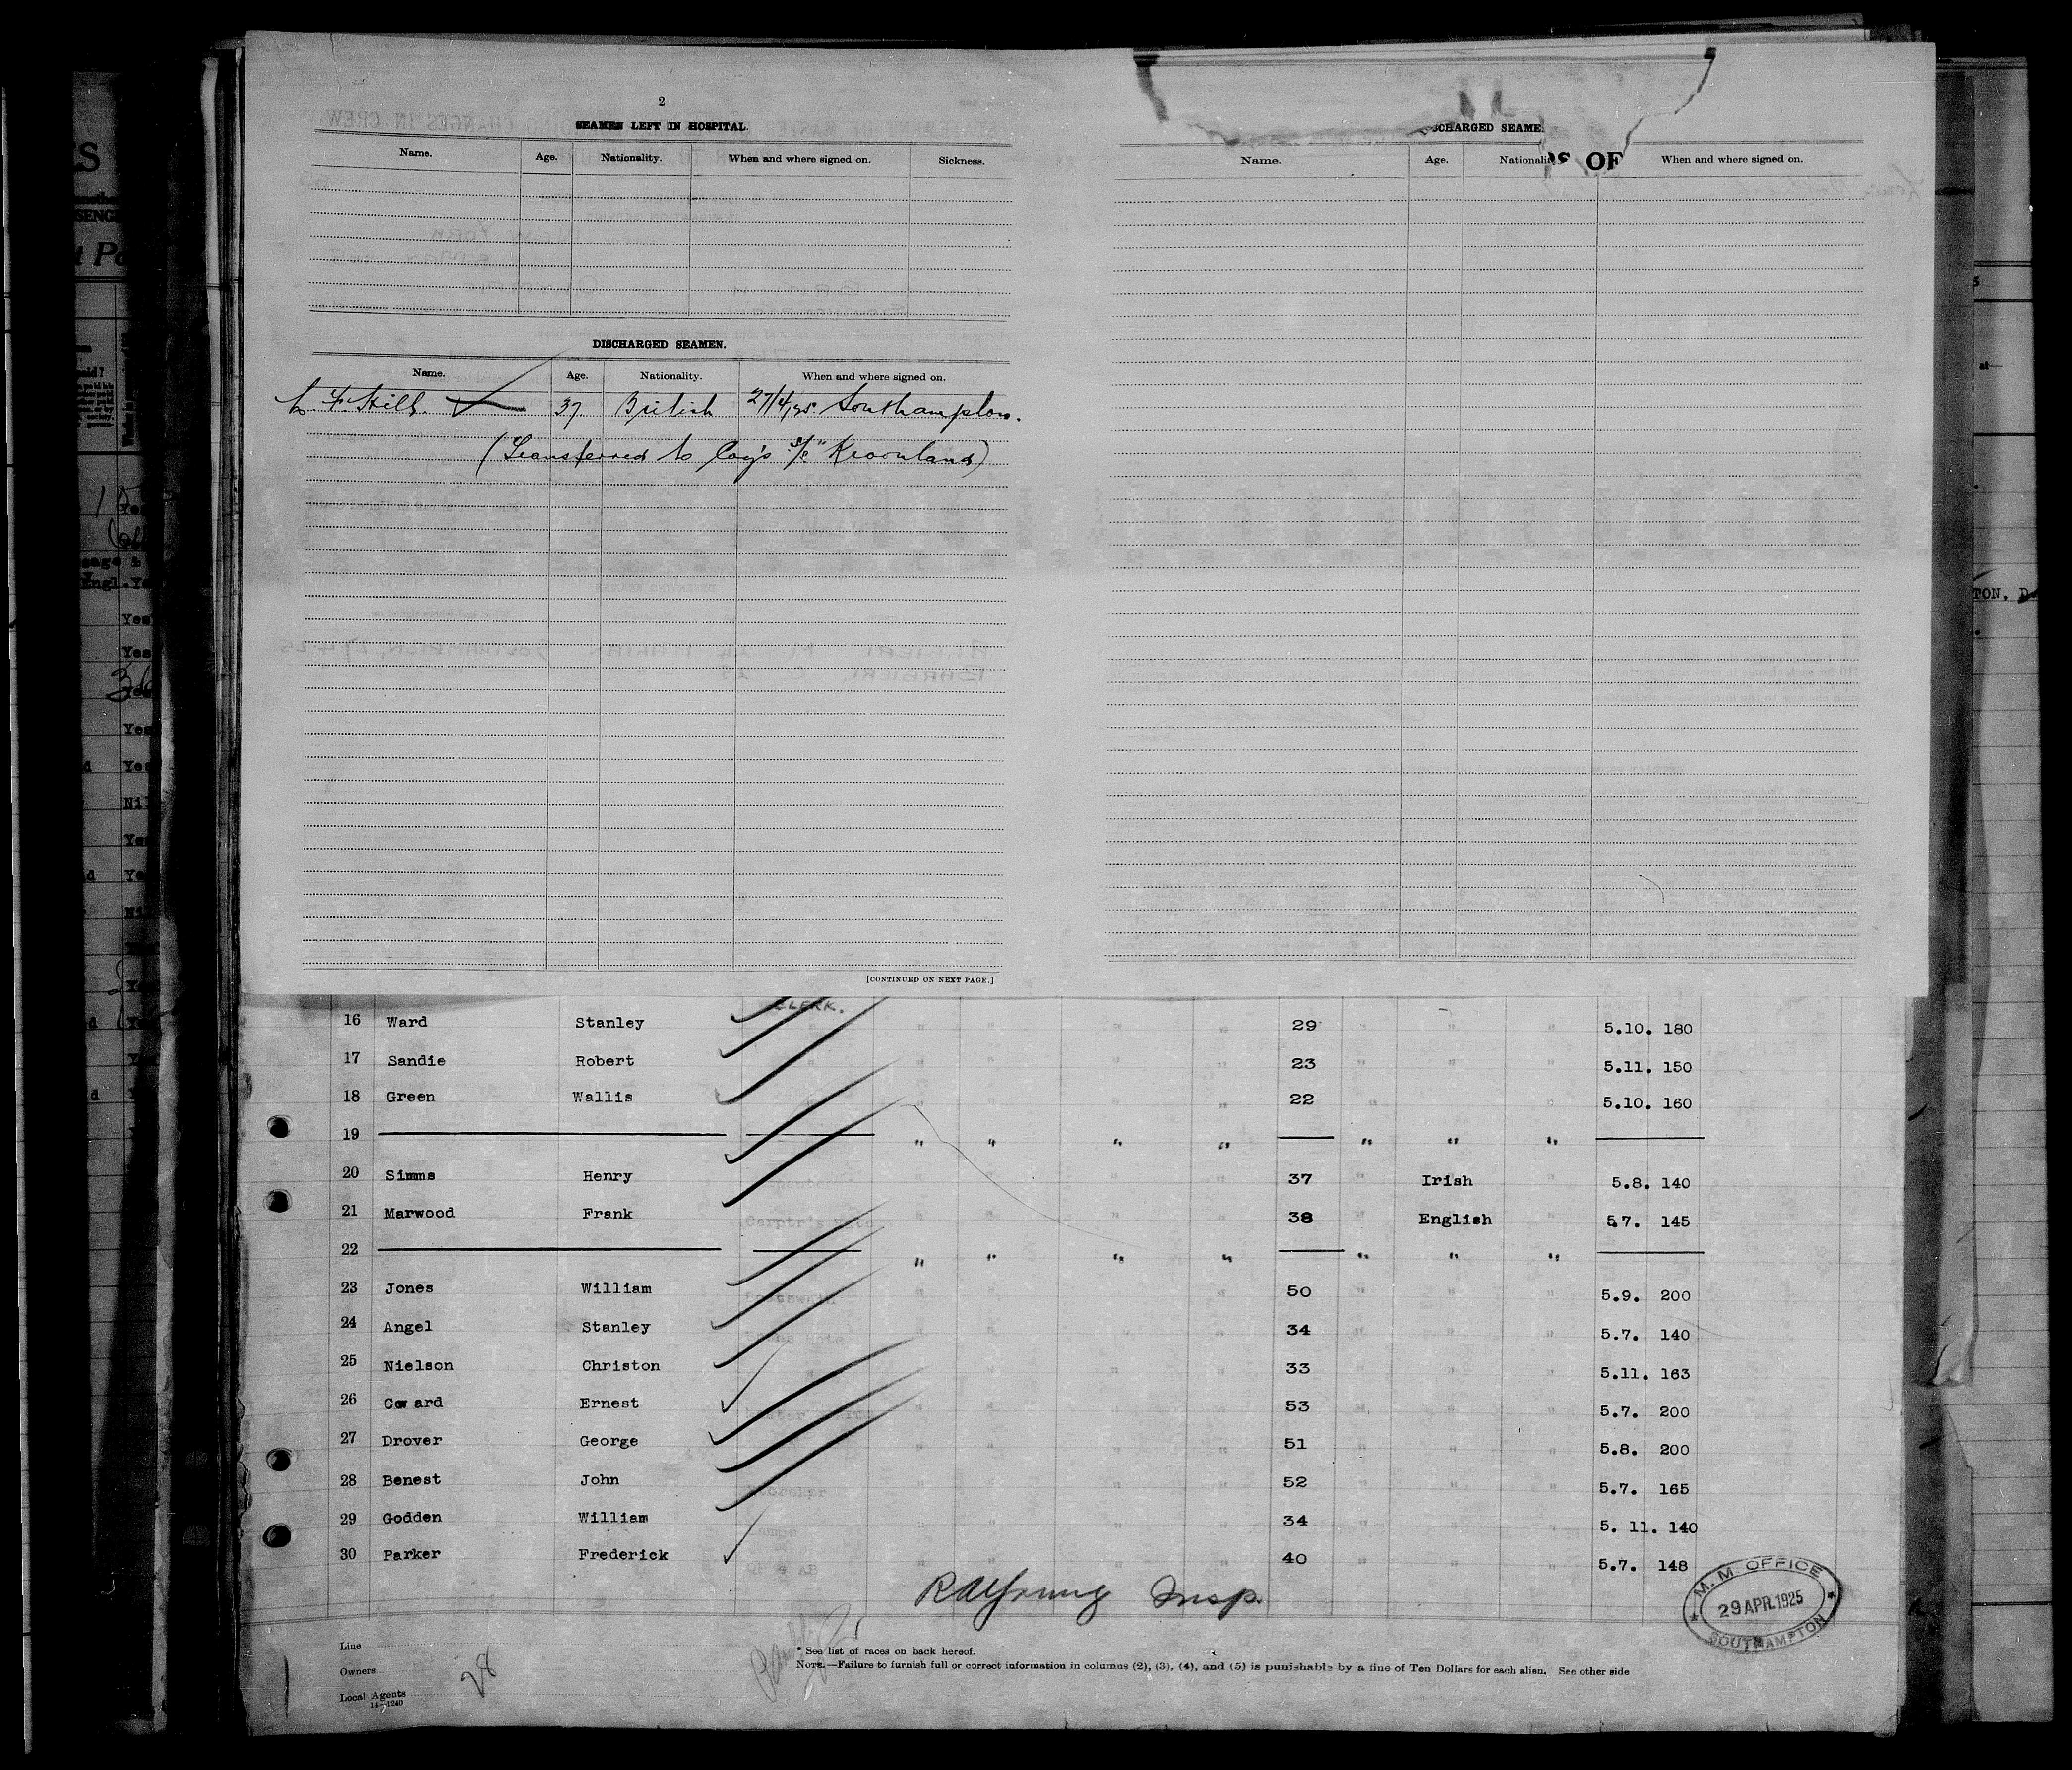 2
SEAMEN LEFT IN HOSPITAL
Name. Age. Nationality. When and where signed on. Sickness.
DISCHARGED SEAMEN.
Name. Age. Nationality. When and where signed on.
Hill. 37 British 27/4/25 Southampton.
(Transferred to Coy's s/s "Kroonland)
[CONTINUED ON NEXT PAGE.]
SCHARGED SEAME
Name. Age. Nationali When and where signed on.
S OF
CLERK.
16 Ward Stanley " " " " 29 " " " 5.10. 180
17 Sandie Robert " " " " " 23 " " " 5.11. 150
18 Green Wallis " " " " 22 " " 5.10. 160
19 " " " " " " "
20 Simms Henry " " " " 37 " Irish " 5.8. 140
21 Marwood Frank Carptr's Mate " " " " 38 " English " 5.7. 145
22 " " " " " " "
23 Jones William Boatswain " " " " 50 " " " 5.9. 200
24 Angel Stanley Mate " " " " 34 " " " 5.7. 140
25 Nielson Christon " " " " 33 " " " 5.11. 163
26 Coward Ernest " " " " 53 " " " 5.7. 200
27 Drover George " " " " 51 " " " 5.8. 200
28 Benest John Storekpr " " " " 52 " " " 5.7. 165
29 Godden William Lamps " " " " 34 " " " 5. 11. 140
30 Parker Frederick AB " " " " 40 " " " 5.7. 148
Young Insp.
M. M. OFFICE
29 APR. 1925
SOUTHAMPTON
Line
Owners
Local Agents
14—1240
28
* See list of races on back hereof.
NOTE.—Failure to furnish full or correct information in columns (2), (3), (4), and (5) is punishable by a fine of Ten Dollars for each alien. See other side
S
SENG
Yes
Yes
Yes
Yes
Nil
Yes
TON, D